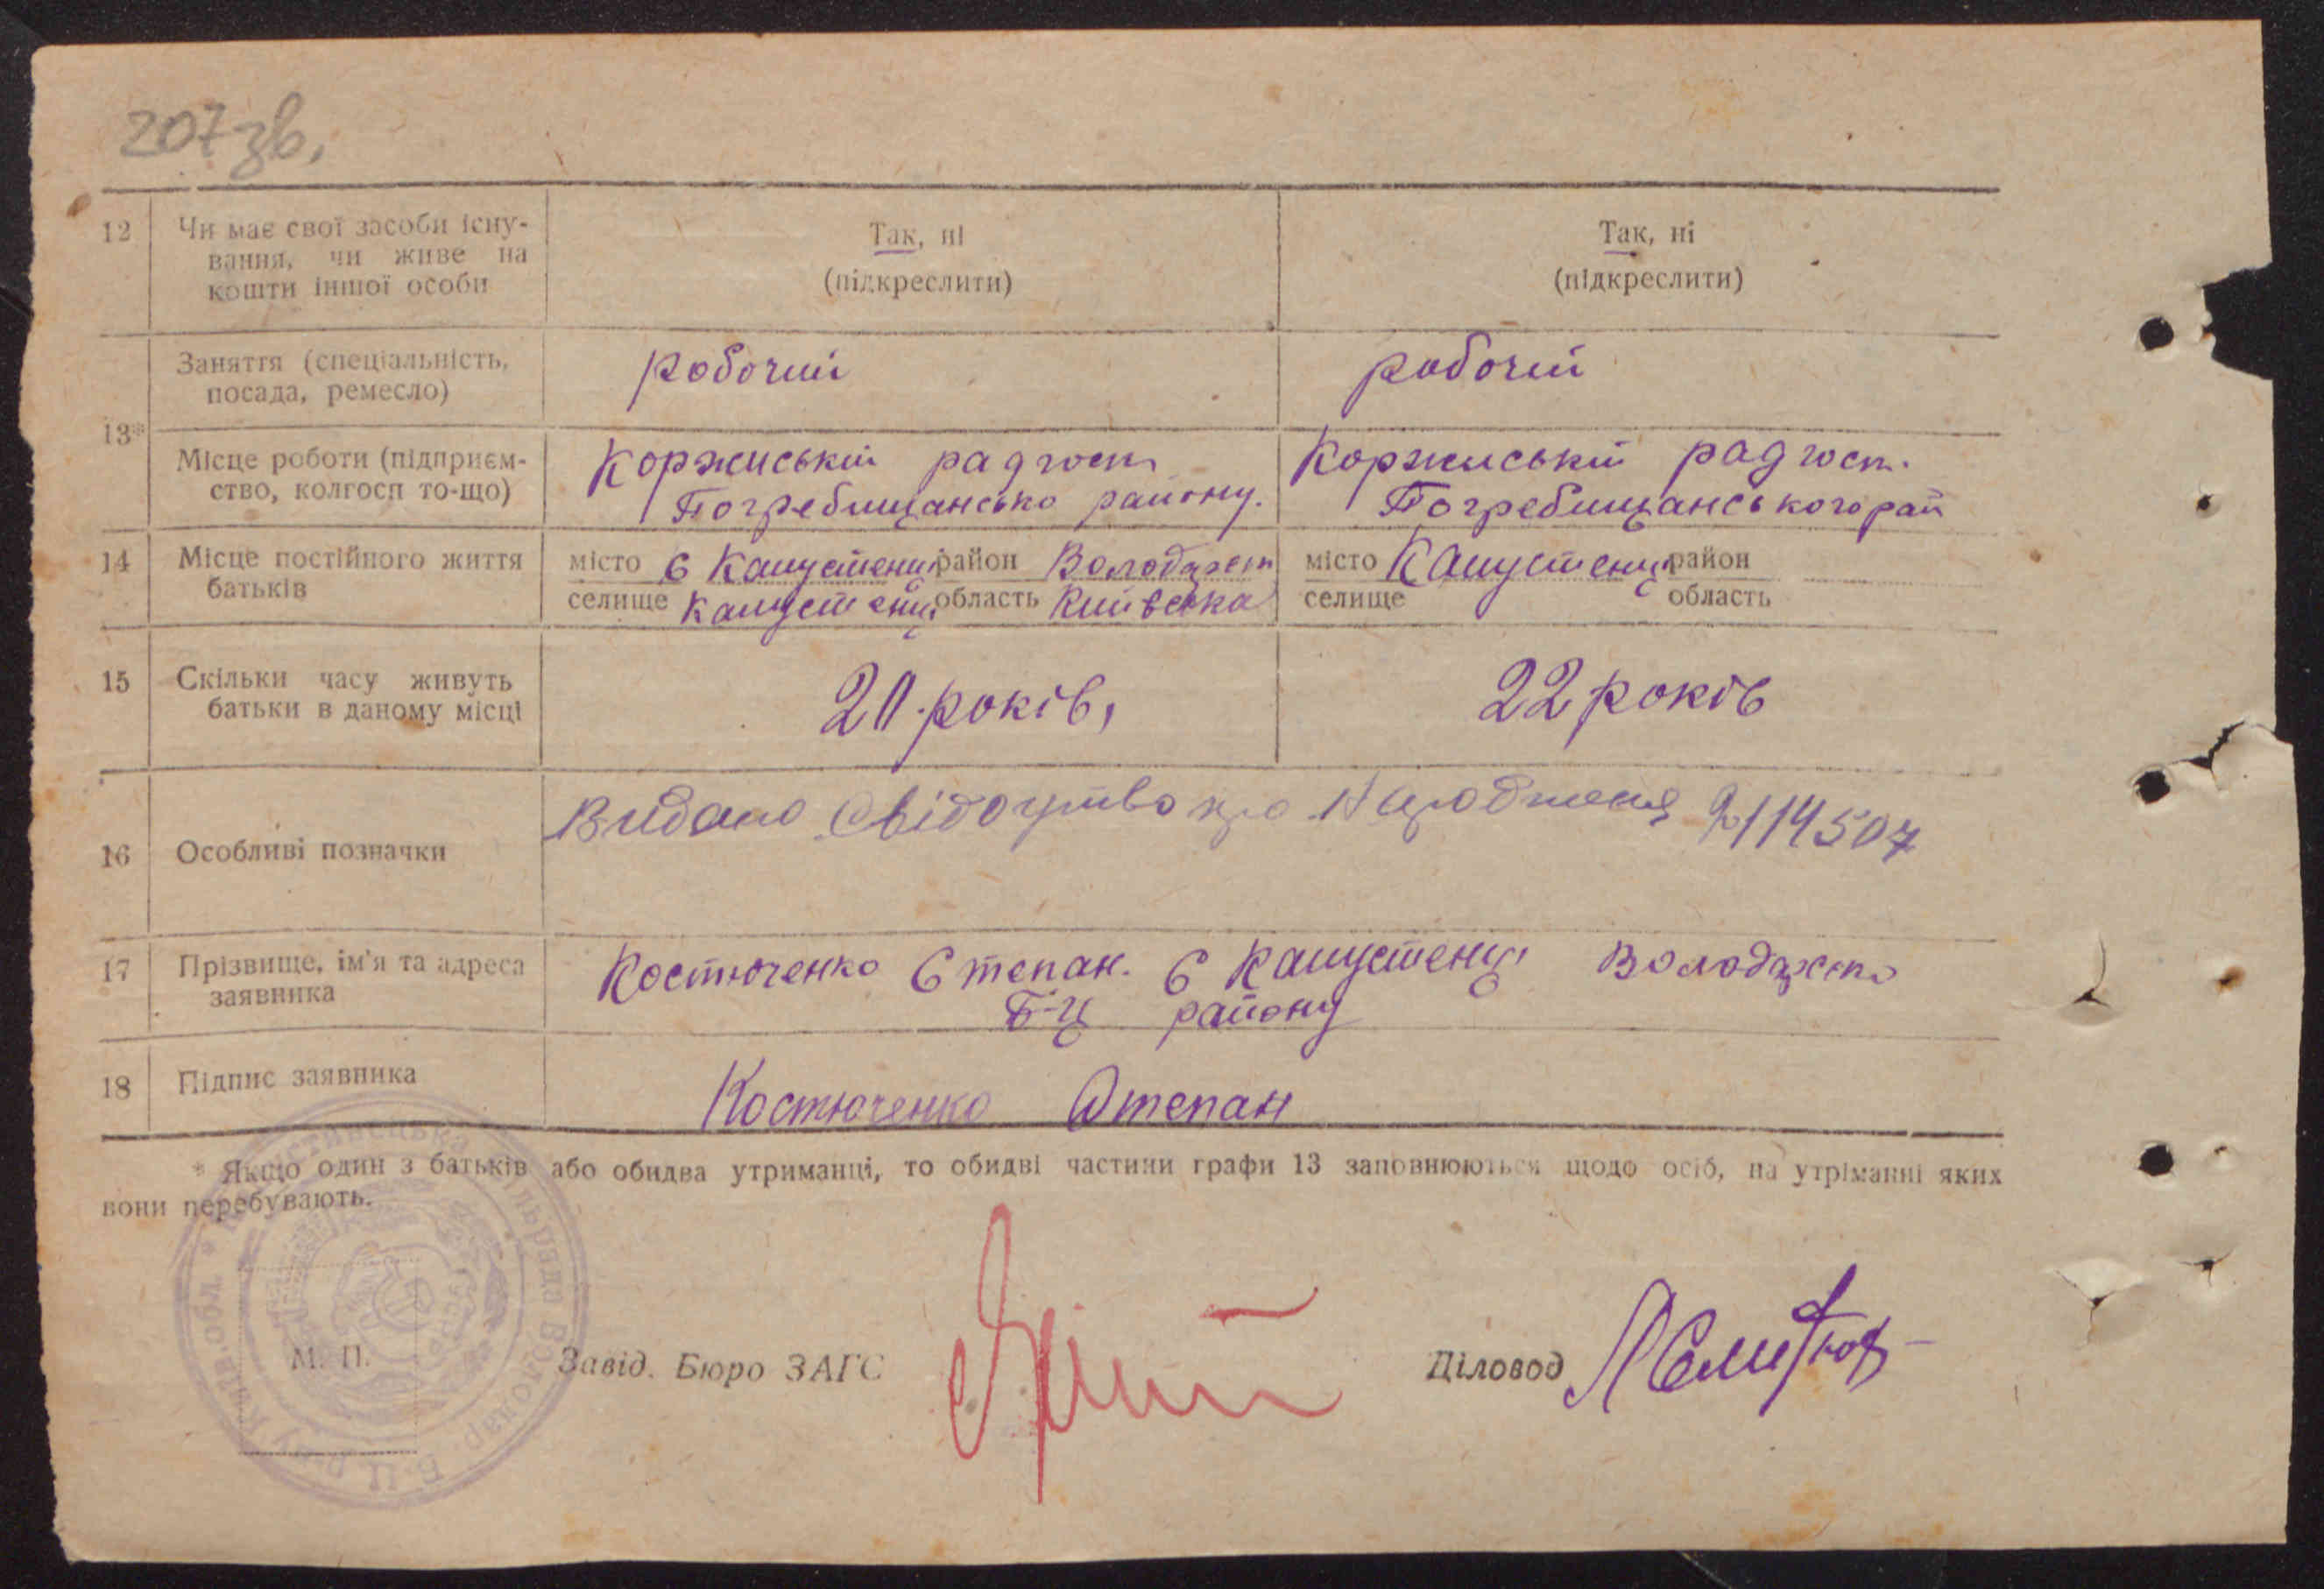 207 зв.
12 Чи має свої засоби існу-
вання, чи живе на
кошти іншої особи
Так, ні
(підкреслити)
Так, ні
(підкреслити)
13*
Заняття (спеціальність,
посада, ремесло)
робочий
робочий
Місце роботи (підприєм-
ство, колгосп то-що)
Коржиській радгосп
Погребищансько району.
Коржиській радгосп.
Погребищанського рай
14 Місце постійного життя
батьків
місто с Капустенці район Володарсп
селище Капустенці область Київська
місто Капустенці район
селище область
15 Скільки часу живуть
батьки в даному місці
20 років,
22 років
16 Особливі позначки
Видано Свідоцтво про Народження 114507
17 Прізвище, ім'я та адреса
заявника
Костюченко Степан. с Капустенці Володарсп
Б-Ц району
18 Підпис заявника
Костюченко Степан
* Якщо один з батьків або обидва утриманці, то обидві частини графи 13 заповнюються щодо осіб, на утріманні яких
вони перебувають.
М. П.
Завід. Бюро ЗАГС
Діловод